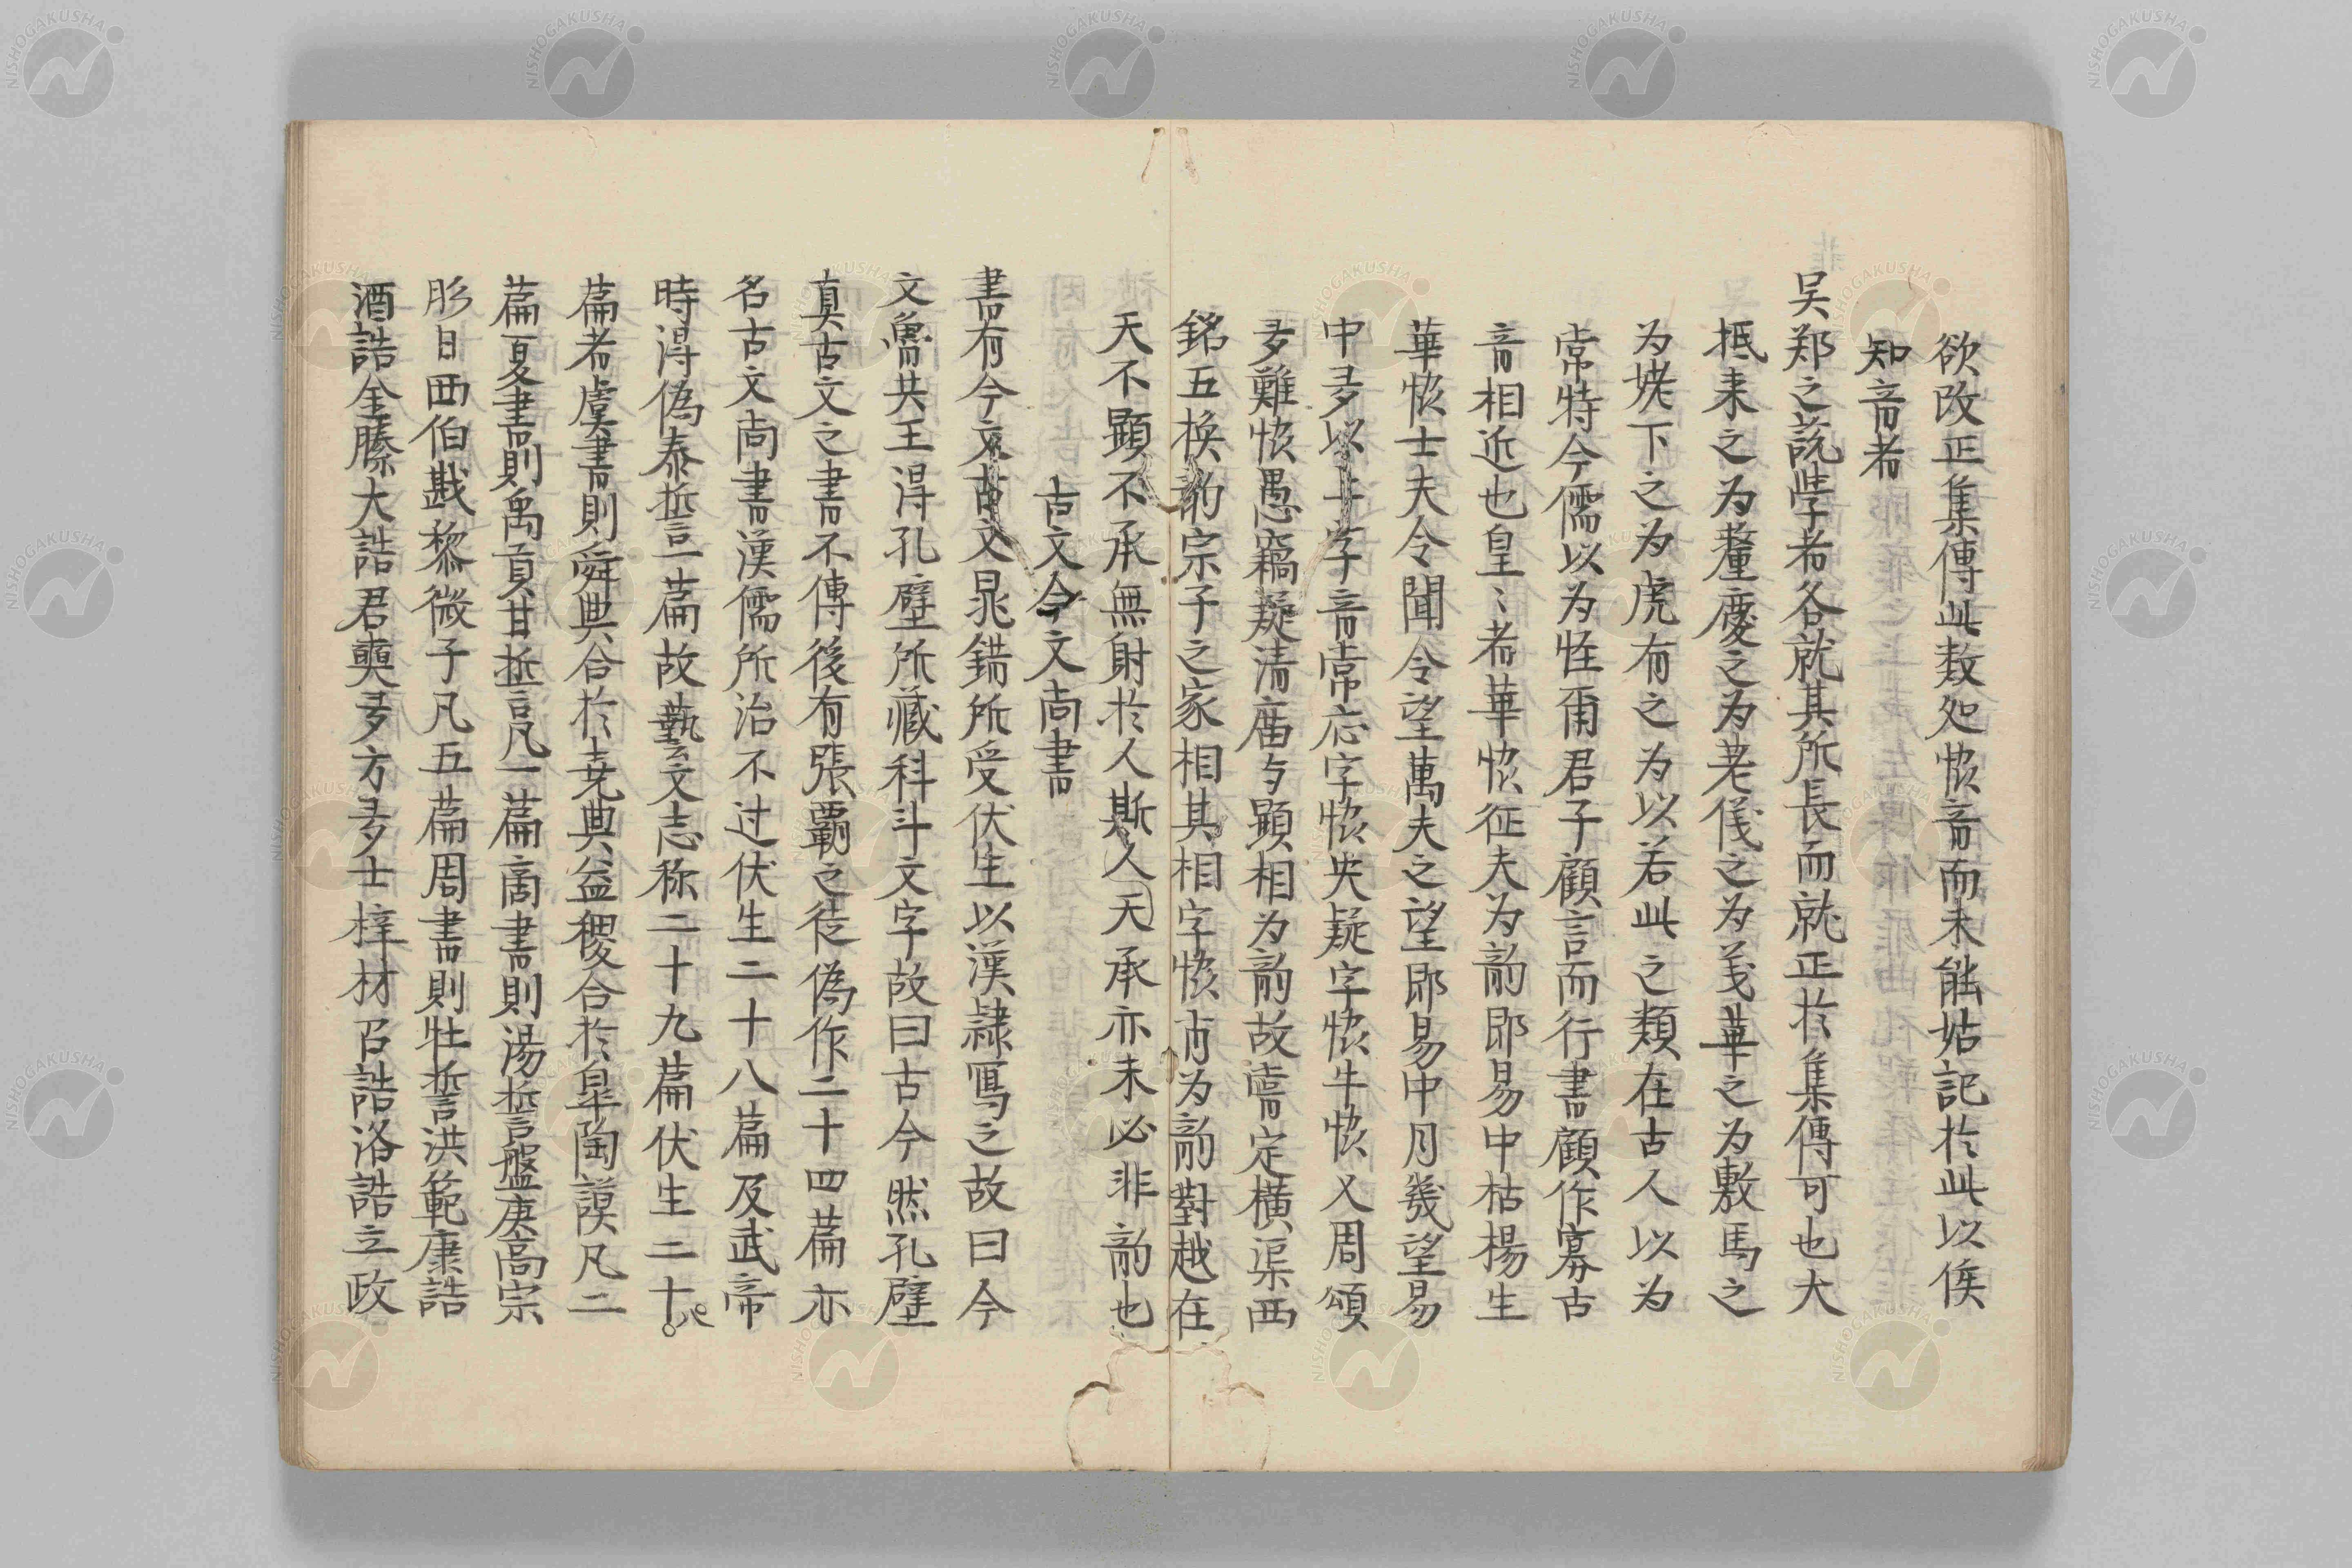 欲改正集傳此数処恊音而未能姑記於此以俟
知音者
吴郑之説学者各就其所長而就正於集傳可也大
抵来之为釐慶之为羌儀之为義華之为敷馬之
为姥下之为虎有之为以若此之類在古人以为
常特今儒以为恠甭君子顧言而行書顧作寡古
音相近也皇〻者華恊征夫为韵郎易中枯楊生
華恊士夫令聞令望萬夫之望郎易中月幾望易
中多以上字音常应字恊央疑字恊牛恊又周頌
多難恊愚竊疑清庙与顯相为韵故嘗定横渠西
銘五换韵宗子之家相其相字恊肓为韵對越在
天不顯不承無射於人斯人天承亦未必非韵也
古文今文尚書
書有今文古文晁錯所受伏生以漢隷冩之故曰今
文魯共王淂孔壁所藏科斗文字故曰古今然孔壁
真古文之書不傳後有張覇之徒偽作二十四篇亦
名古文尚書漢儒所治不过伏生二十八篇及武帝
時淂偽泰誓一篇故藝文志称二十九篇伏生二十。
篇者虞書則舜典合於尭典益稷合於皐陶謨凡二
篇夏書則禹貢甘誓凡一篇商書則湯誓盤庚高宗
肜日西伯戡黎微子凡五篇周書則牡誓洪範康誥
酒誥金縢大誥君奭多方多士梓材召誥洛誥立政
NISHOGAKUSHA